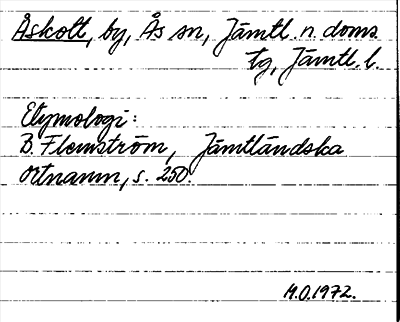 Åskott, by, Ås sn, Jämtl. n. doms
tg, Jämtl. l.
Etymologi:
B. Flemström, Jämtländska
ortnamn, s. 250.
M.O.1972.